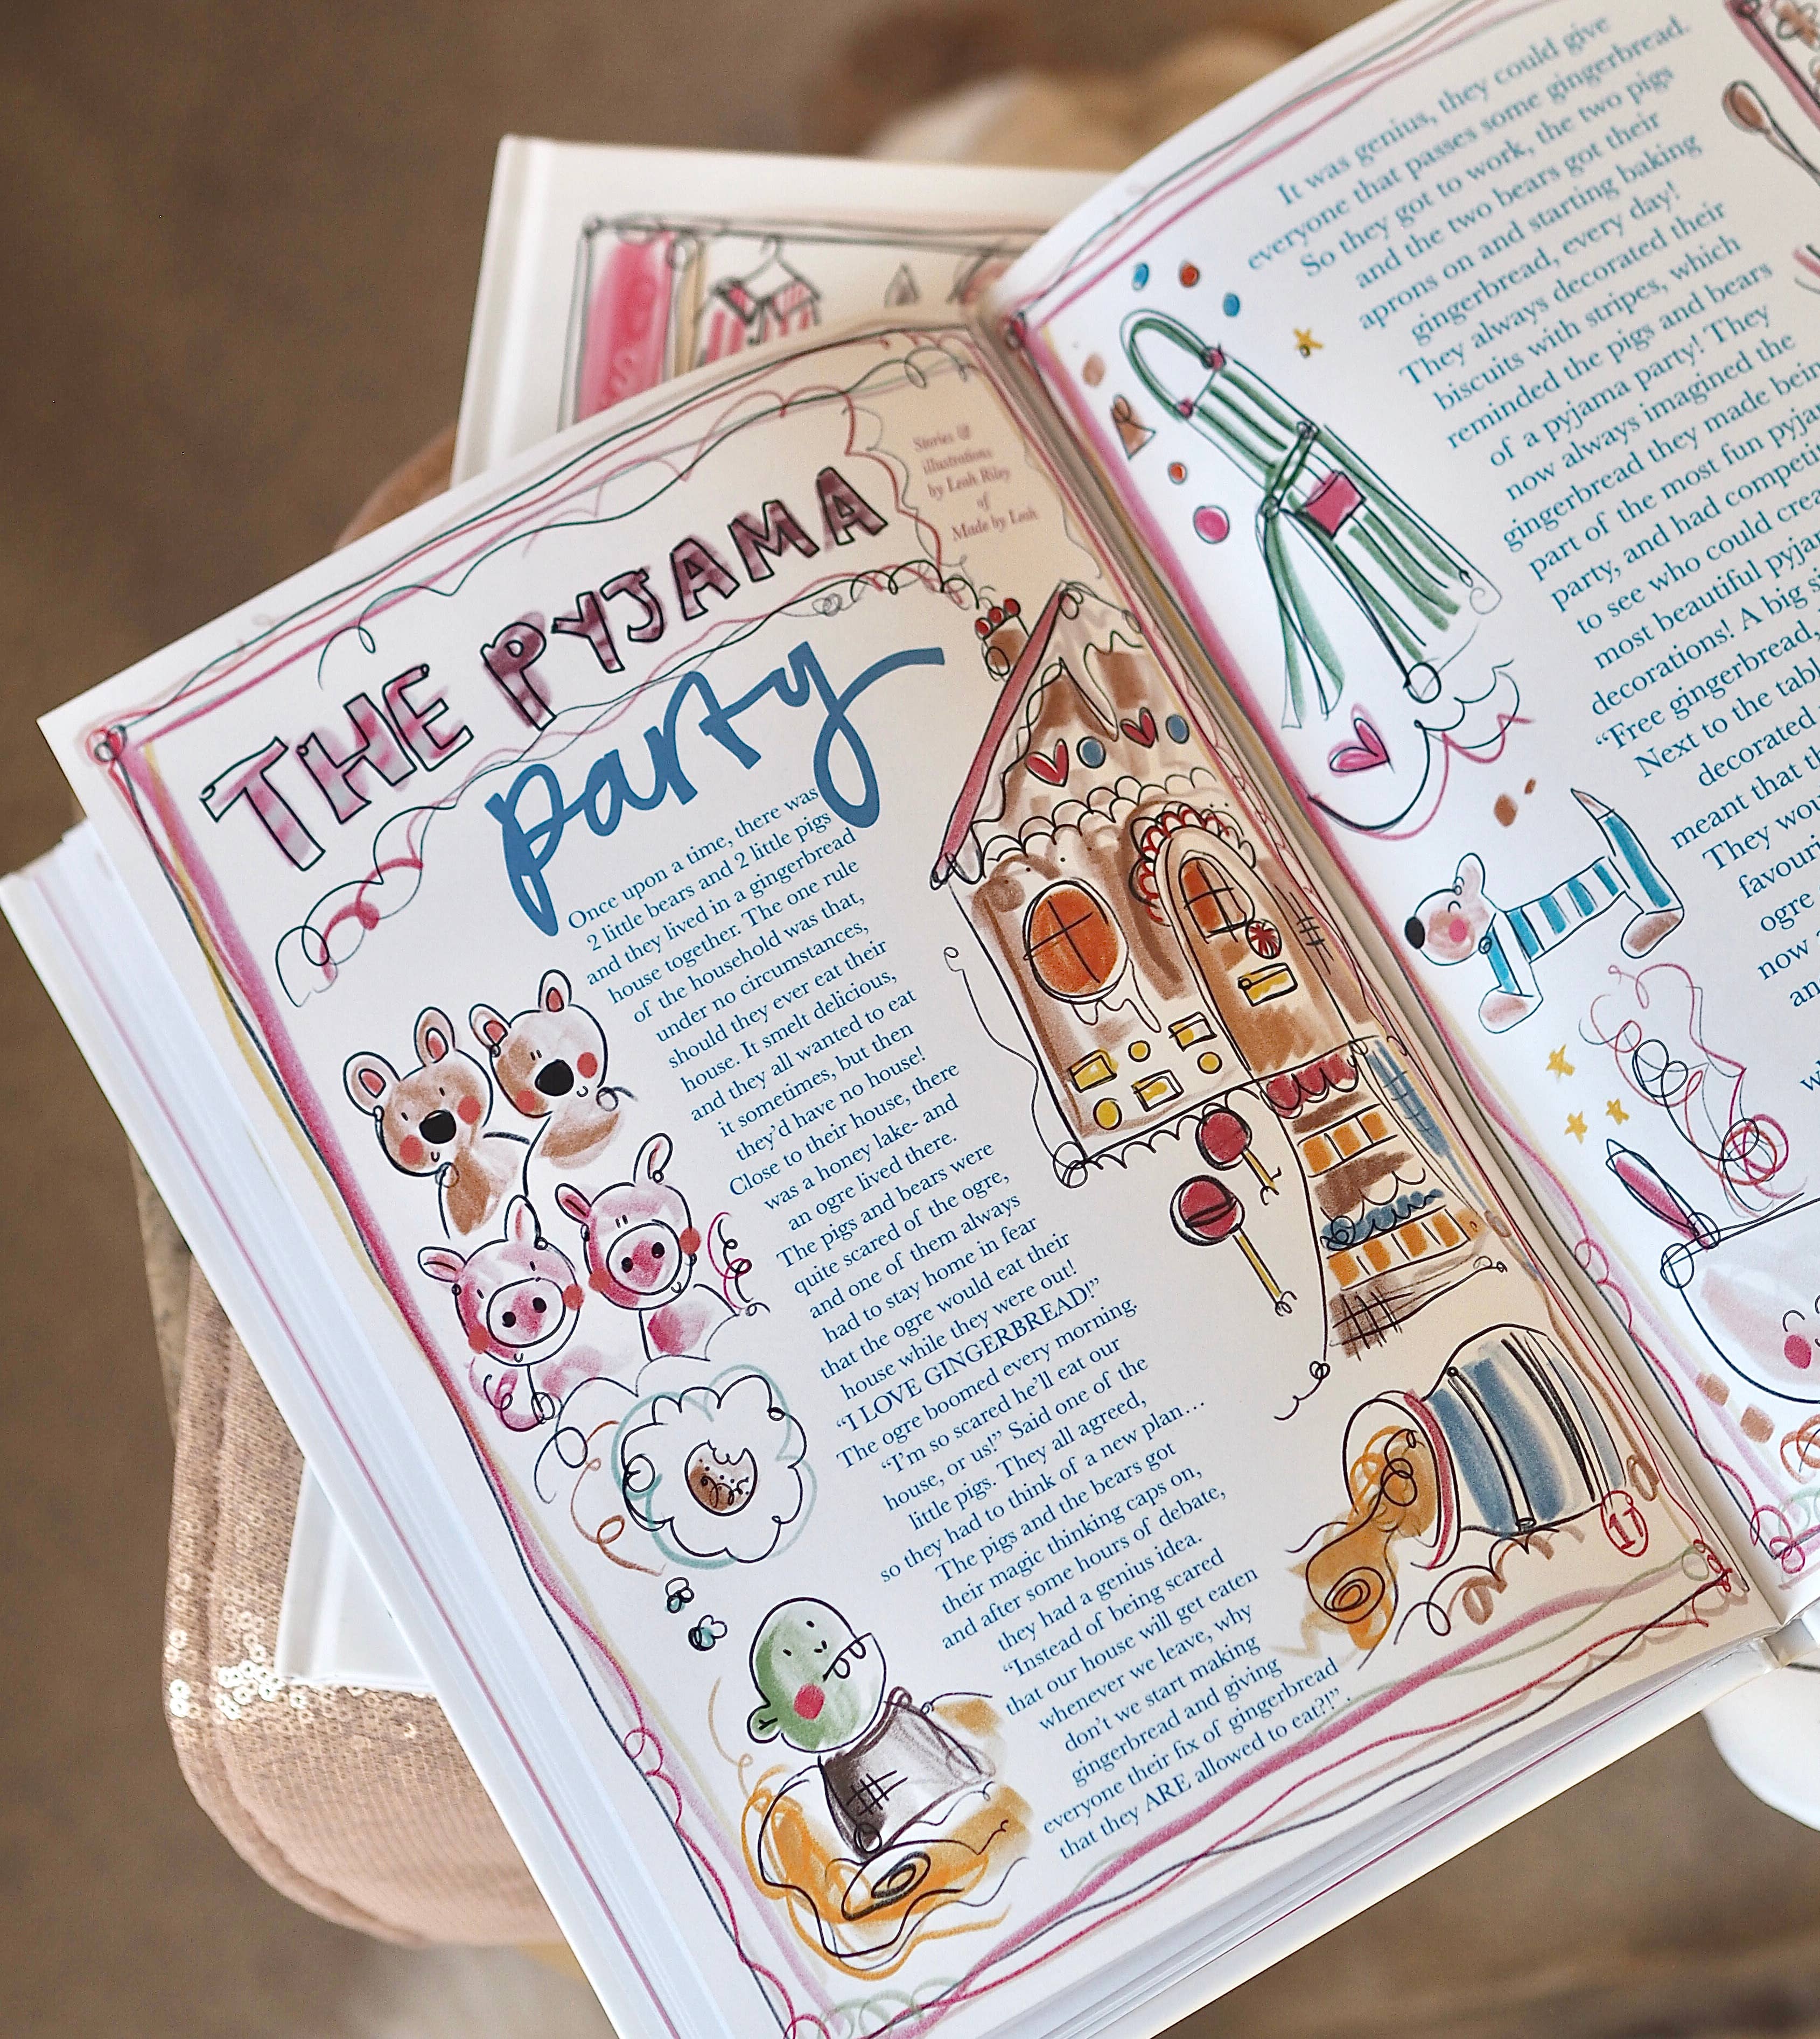 THE PYJAMA
party
Stories &
illustrations
by Leah Riley
of
Made by Leah
Once upon a time, there was
2 little bears and 2 little pigs
and they lived in a gingerbread
house together. The one rule
of the household was that,
under no circumstances,
should they ever eat their
house. It smelt delicious,
and they all wanted to eat
it sometimes, but then
they'd have no house!
Close to their house, there
was a honey lake- and
an ogre lived there.
The pigs and bears were
quite scared of the ogre,
and one of them always
had to stay home in fear
that the ogre would eat their
house while they were out!
“I LOVE GINGERBREAD!”
The ogre boomed every morning.
“I'm so scared he'll eat our
house, or us!” Said one of the
little pigs. They all agreed,
so they had to think of a new plan…
The pigs and the bears got
their magic thinking caps on,
and after some hours of debate,
they had a genius idea.
“Instead of being scared
that our house will get eaten
whenever we leave, why
don't we start making
gingerbread and giving
everyone their fix of gingerbread
that they ARE allowed to eat?!”.
17
It was genius, they could give
everyone that passes some gingerbread.
So they got to work, the two pigs
and the two bears got their
aprons on and starting baking
gingerbread, every day!
They always decorated their
biscuits with stripes, which
reminded the pigs and bears
of a pyjama party! They
now always imagined the
gingerbread they made being
part of the most fun
party, and had
to see who could
most beautiful
decorations! A big
“Free gingerbread,
Next to the
decorated
meant that
They
ogre
now